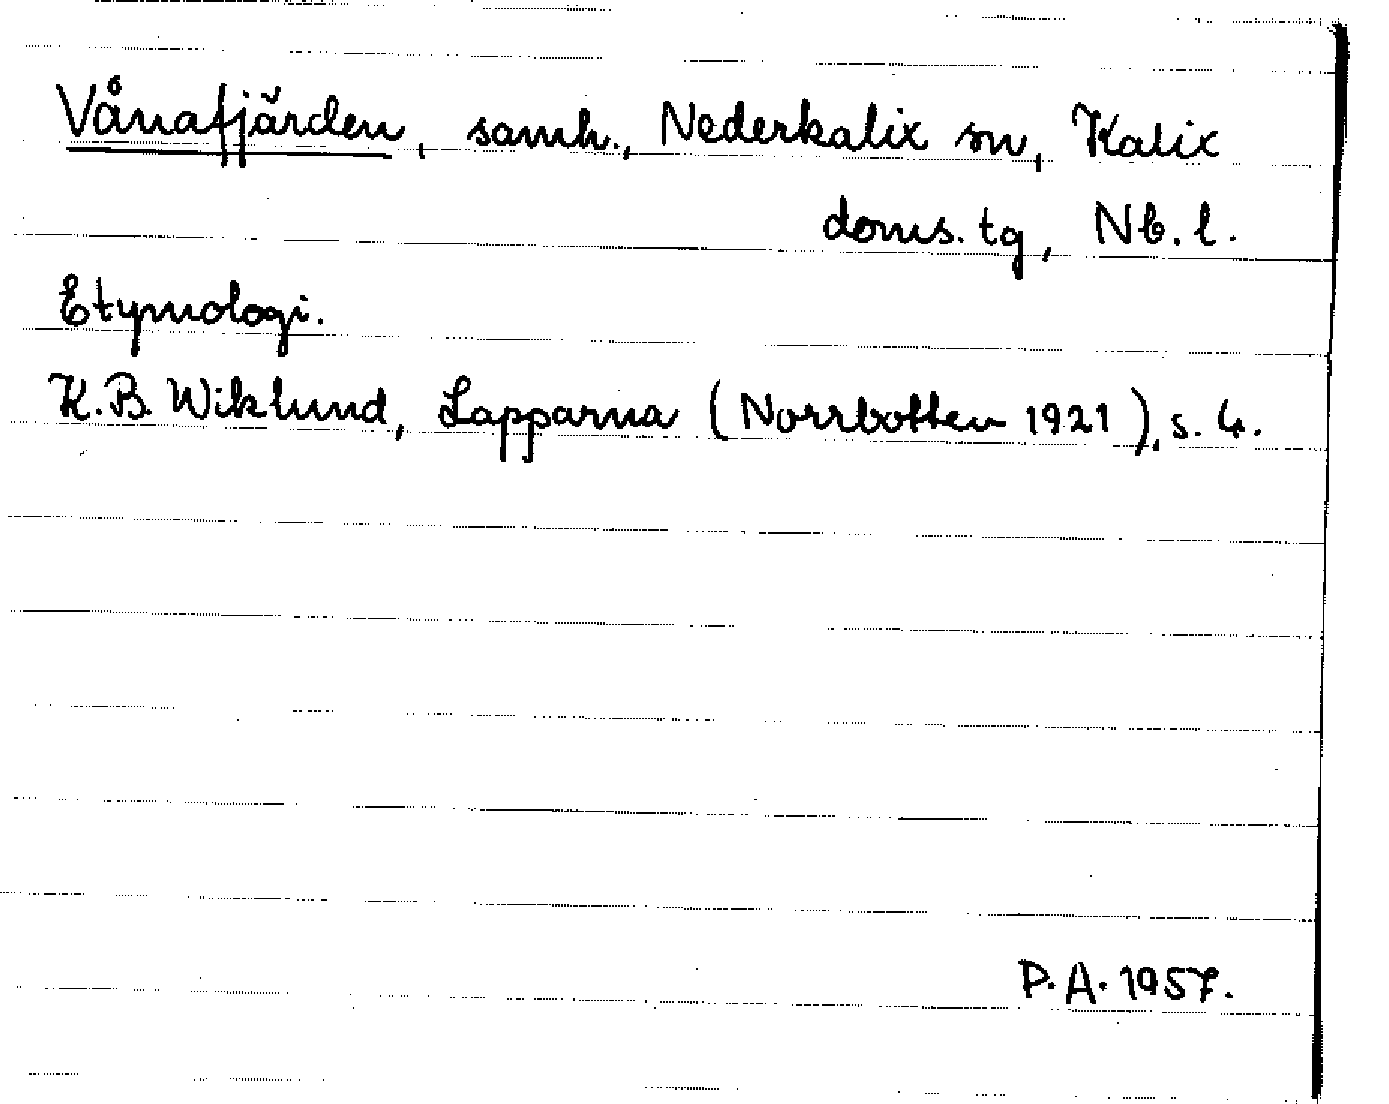 Vånafjärden, samh., Nederkalix sn, Kalix
doms. tg, Nb. l.
Etymologi.
K.B. Wiklund, Lapparna (Norrbotten 1921), s. 4.
P.A. 1957.